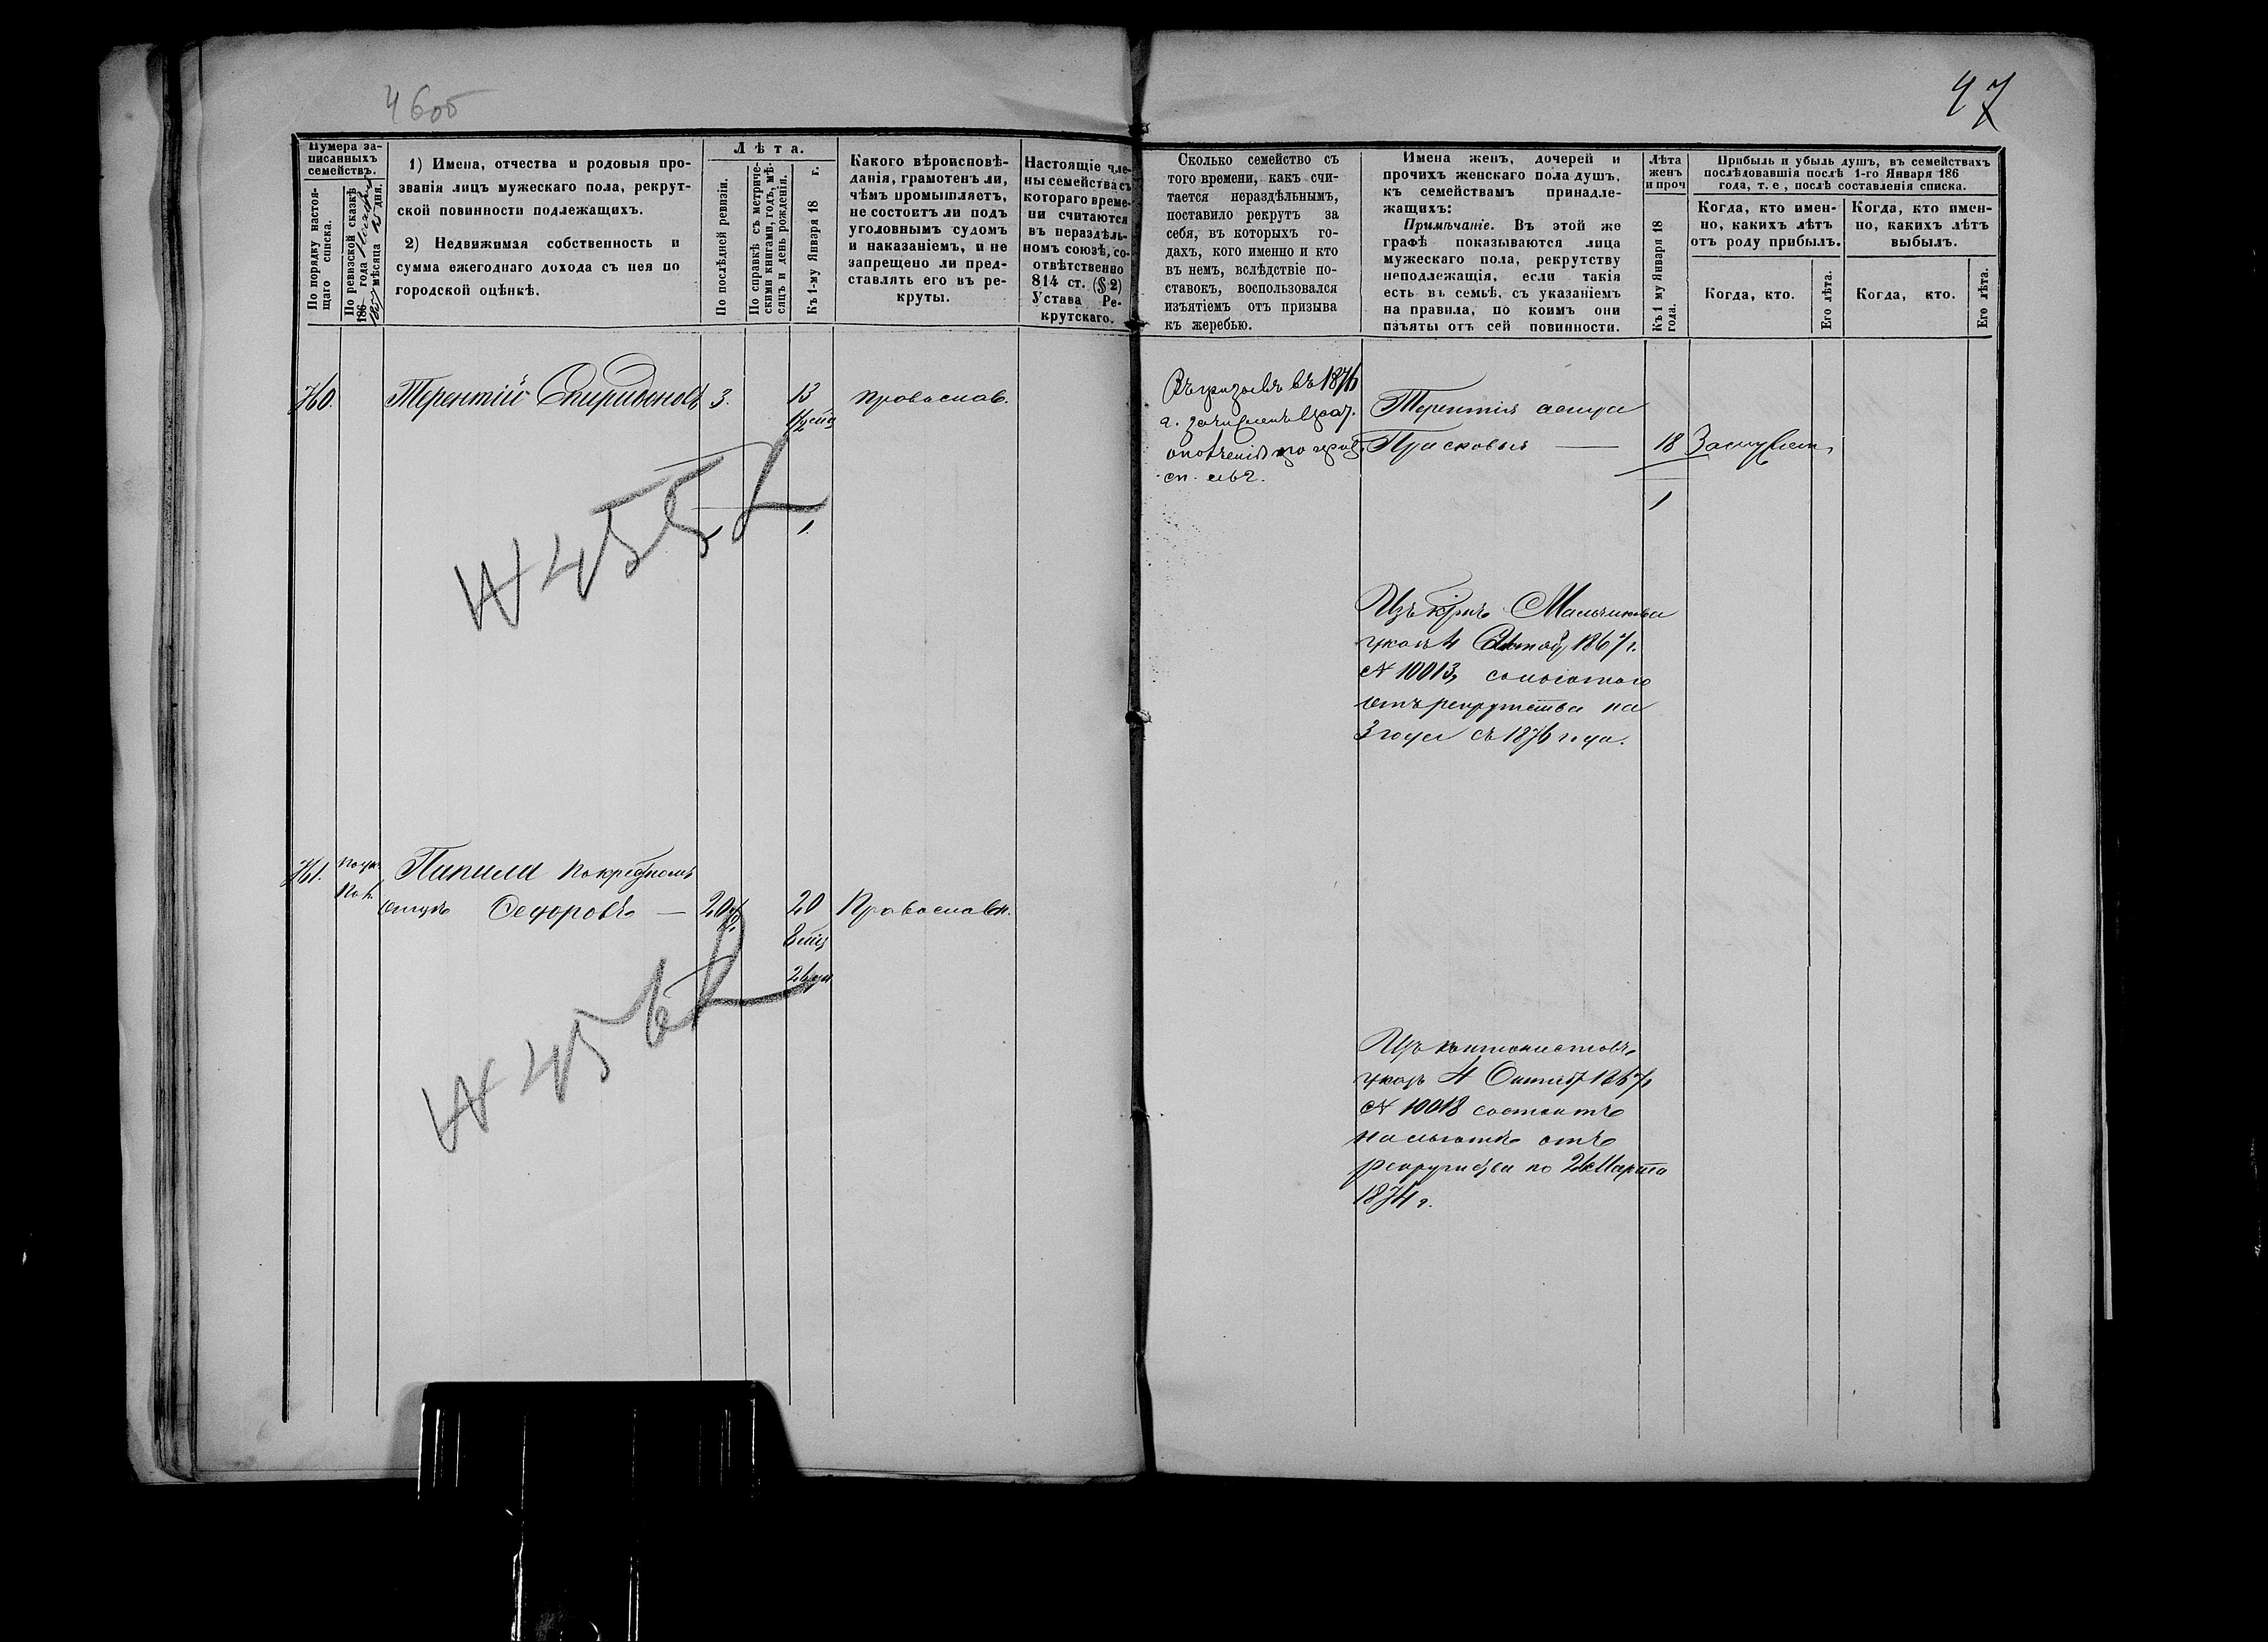 46об
47
Нумера за-
писанныхъ
семействъ.
По порядку настоя-
щаго списка.
По ревизской сказкѣ
186 года
мѣсяца дня.
1) Имена, отчества и родовыя про-
званія лицъ мужескаго пола, рекрут-
ской повинности подлежащихъ.
2) Недвижимая собственность и
сумма ежегоднаго дохода съ нея по
городской оцѣнкѣ.
Лѣта.
По послѣдней ревизіи.
По справкѣ съ метриче-
скими книгами, годъ, мѣ-
сяцъ и день рожденія.
Къ 1-му Января 18 г.
Какого вѣроисповѣ-
данія, грамотенъ ли,
чѣмъ промышляетъ,
не состоитъ ли подъ
уголовнымъ судомъ
и наказаніемъ, и не
запрещено ли пред-
ставлять его въ ре-
круты.
Настоящіе чле-
ны семейства съ
котораго време-
ни считаются
въ нераздѣль-
номъ союзѣ, со-
отвѣтственно
814 ст. (§ 2)
Устава Ре-
крутскаго.
Сколько семейство съ
того времени, какъ счи-
тается нераздѣльнымъ,
поставило рекрутъ за
себя, въ которыхъ го-
дахъ, кого именно и кто
въ немъ, вслѣдствіе по-
ставокъ, воспользовался
изъятіемъ отъ призыва
къ жеребью.
Имена женъ, дочерей и
прочихъ женскаго пола душъ,
къ семействамъ принадле-
жащихъ:
Примѣчаніе. Въ этой же
графѣ показываются лица
мужескаго пола, рекрутству
неподлежащія, если такія
есть въ семьѣ, съ указаніемъ
на правила, по коимъ они
изъяты отъ сей повинности.
Лѣта
женъ
и проч
Къ 1 му Января 18
года.
Прибыль и убыль душъ, въ семействахъ
послѣдовавшія послѣ 1-го Января 186
года, т. е., послѣ составленія списка.
Когда, кто имен-
но, какихъ лѣтъ
отъ роду прибылъ.
Когда, кто имен-
но, какихъ лѣтъ
выбылъ.
Когда, кто.
Его лѣта.
Когда, кто.
Его лѣта.
Терентій Спиридоновъ 3. 13
Православ.
1
№ 455
въ 1876
г. зачисленъ
ополченія по
Терентія
Прасковья — 18
1
Изъ
указъ 4 1867 г.
№ 10013,
отъ рекрутства на
3 года съ 1876 года.
Покрестномъ
отцѣ Ѳедоровъ — 20 20 Православн.
№ 456
Изъ кантонистовъ
указъ 4 Октяб 1867
№ 10018 состоитъ
на льготѣ отъ
рекрутства по Марта
1874 г.